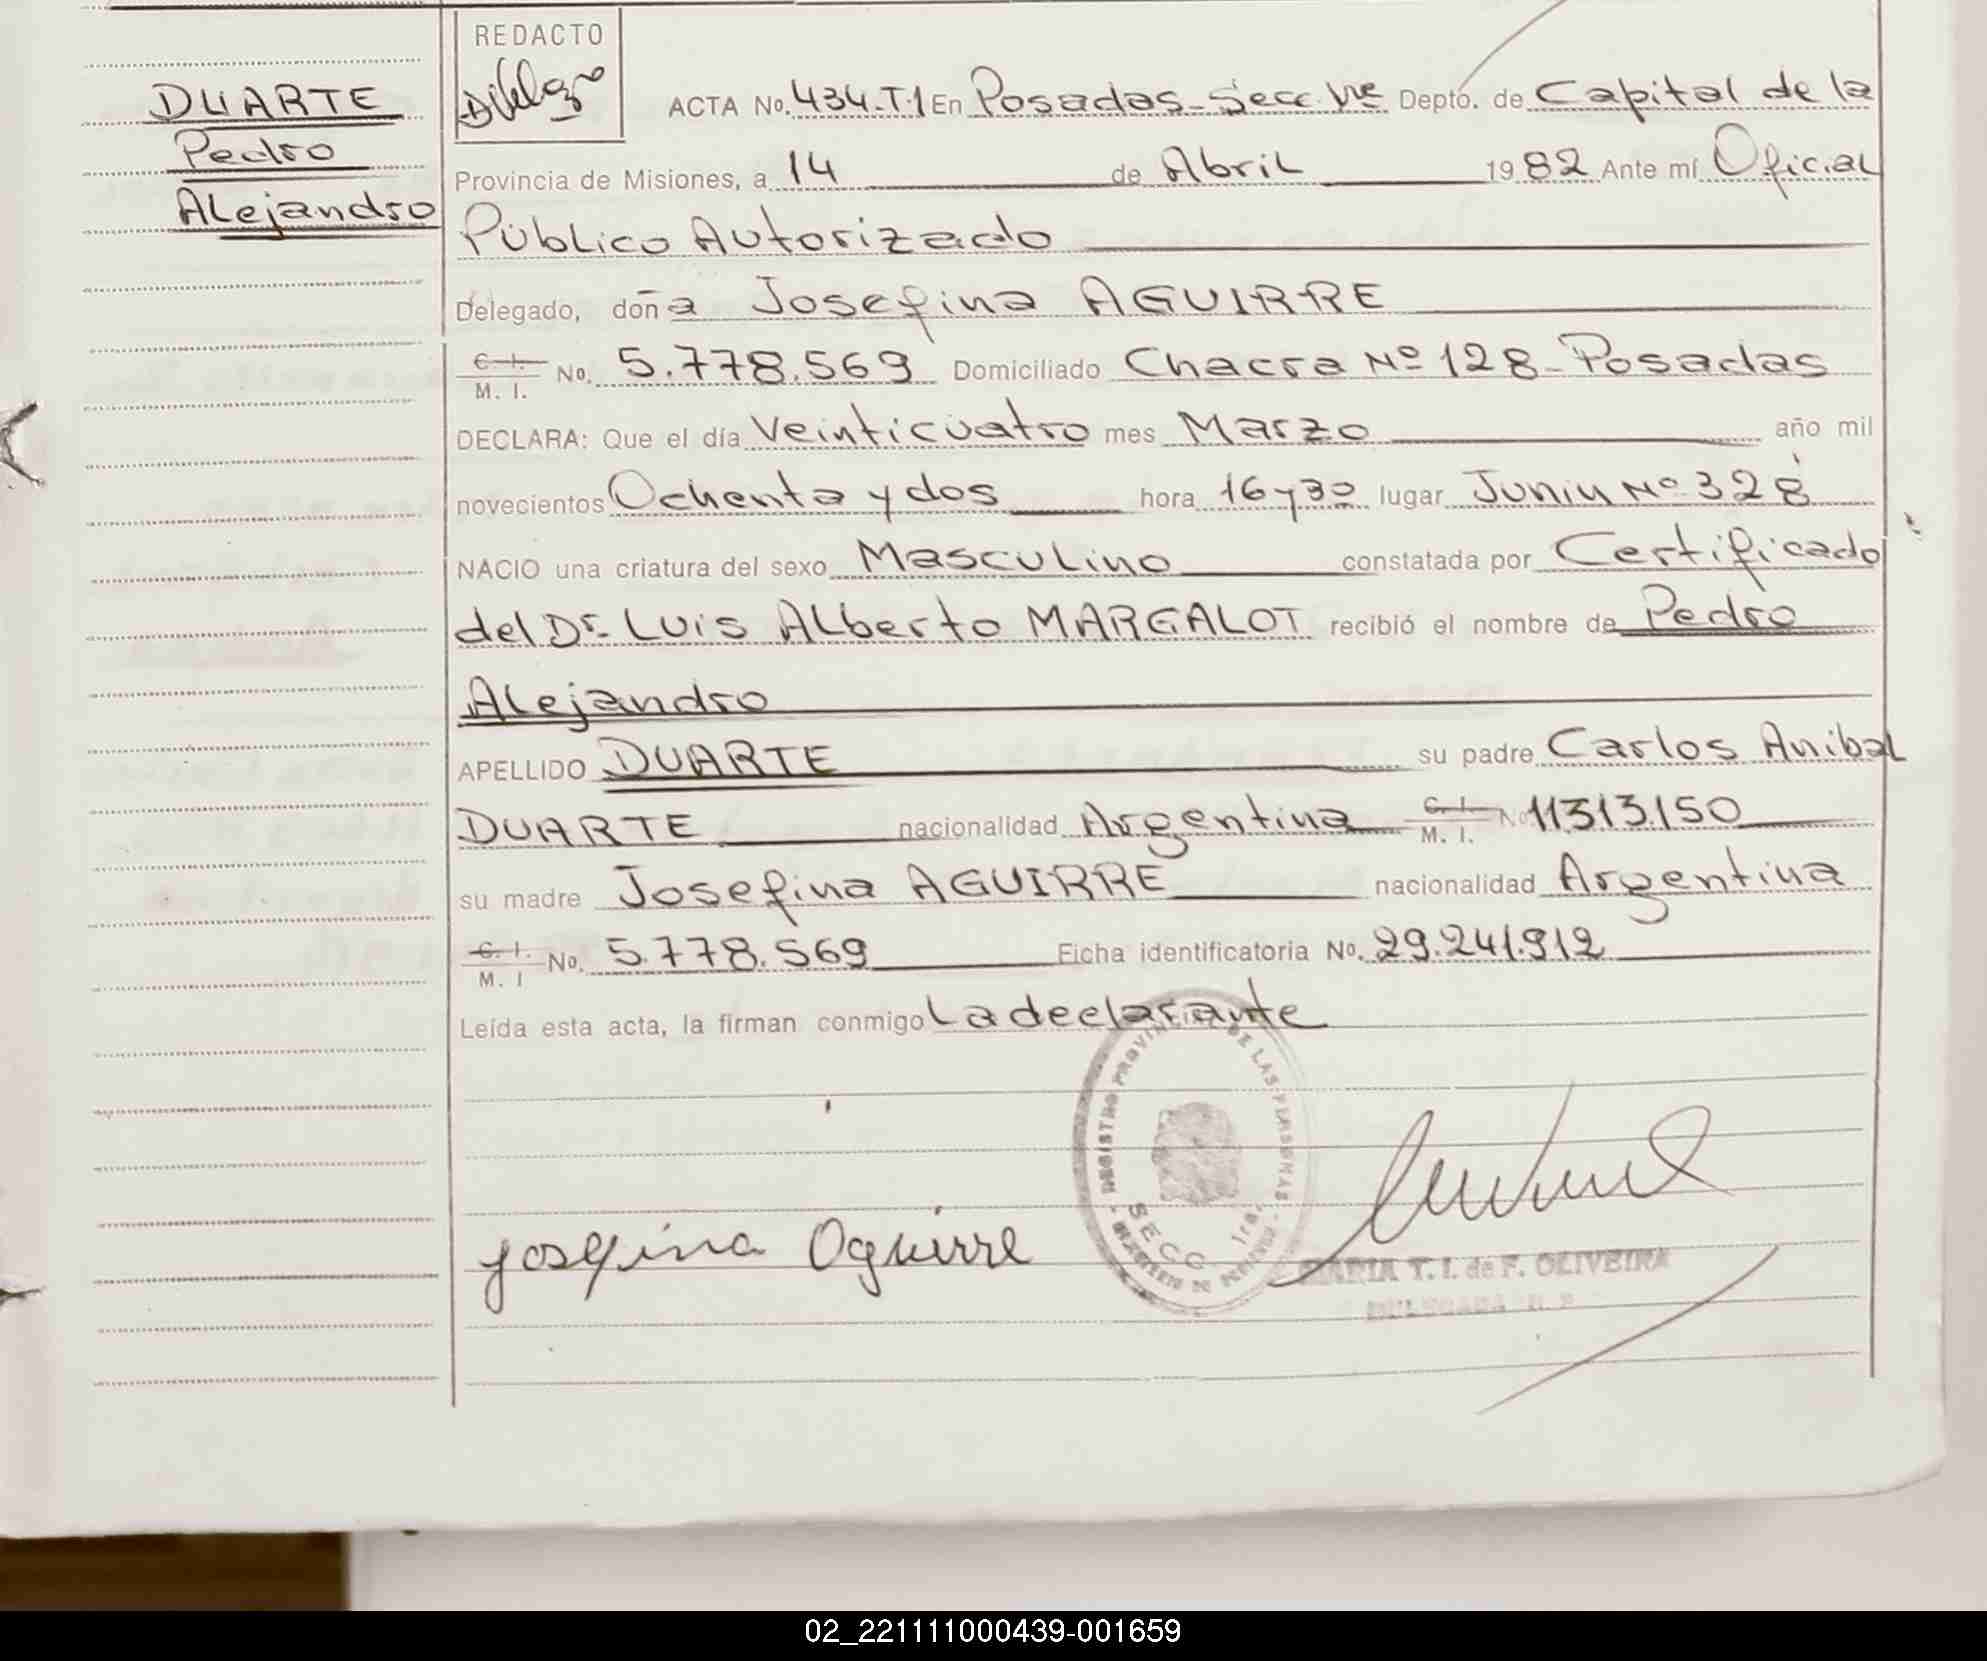 DUARTE
Pedro
Alejandro
REDACTO
ACTA No. 434-T.1 En Posadas-Secc. 1ra Depto. de Capital de la
Provincia de Misiones, a 14 de Abril 1982 Ante mí Oficial
Público Autorizado
Delegado, doña Josefina AGUIRRE
C. I. / M. I. No. 5.778.569 Domiciliado Chacra Nº 128-Posadas
DECLARA: Que el día Veinticuatro mes Marzo año mil
novecientos Ochenta y dos hora 16 y 30 lugar Junin Nº 328
NACIO una criatura del sexo Masculino constatada por Certificado
del Dr. Luis Alberto MARGALOT recibió el nombre de Pedro
Alejandro
APELLIDO DUARTE su padre Carlos Anibal
DUARTE nacionalidad Argentina C. I. / M. I. No 11.313.150
su madre Josefina AGUIRRE nacionalidad Argentina
C. I. / M. I No. 5.778.569 Ficha identificatoria No. 29.241.912
Leída esta acta, la firman conmigo La declarante
REGISTRO PROVINCIAL DE LAS PERSONAS
SECC. 1ra.
Josefina Aguirre
MARIA T. I. de F. OLIVEIRA
DELEGADA R. P.
02_221111000439-001659